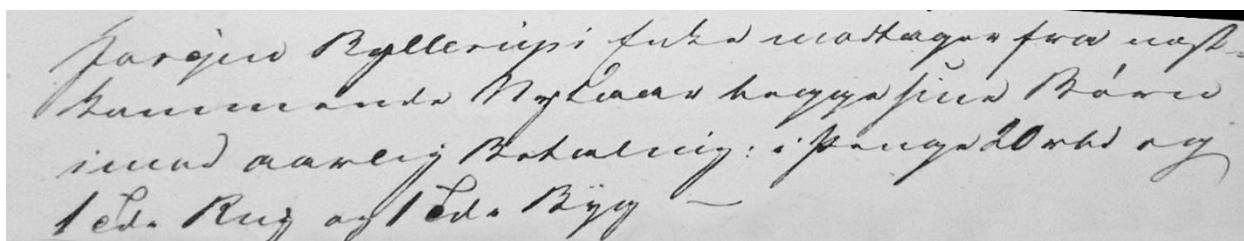 Jørgen Byllerups Enke modtager fra næst-
kommende Nytaar begge sine Børn
imod aarlig Betalning: i Penge 20 rbd og
1 Tde Rug og 1 Tde Byg —